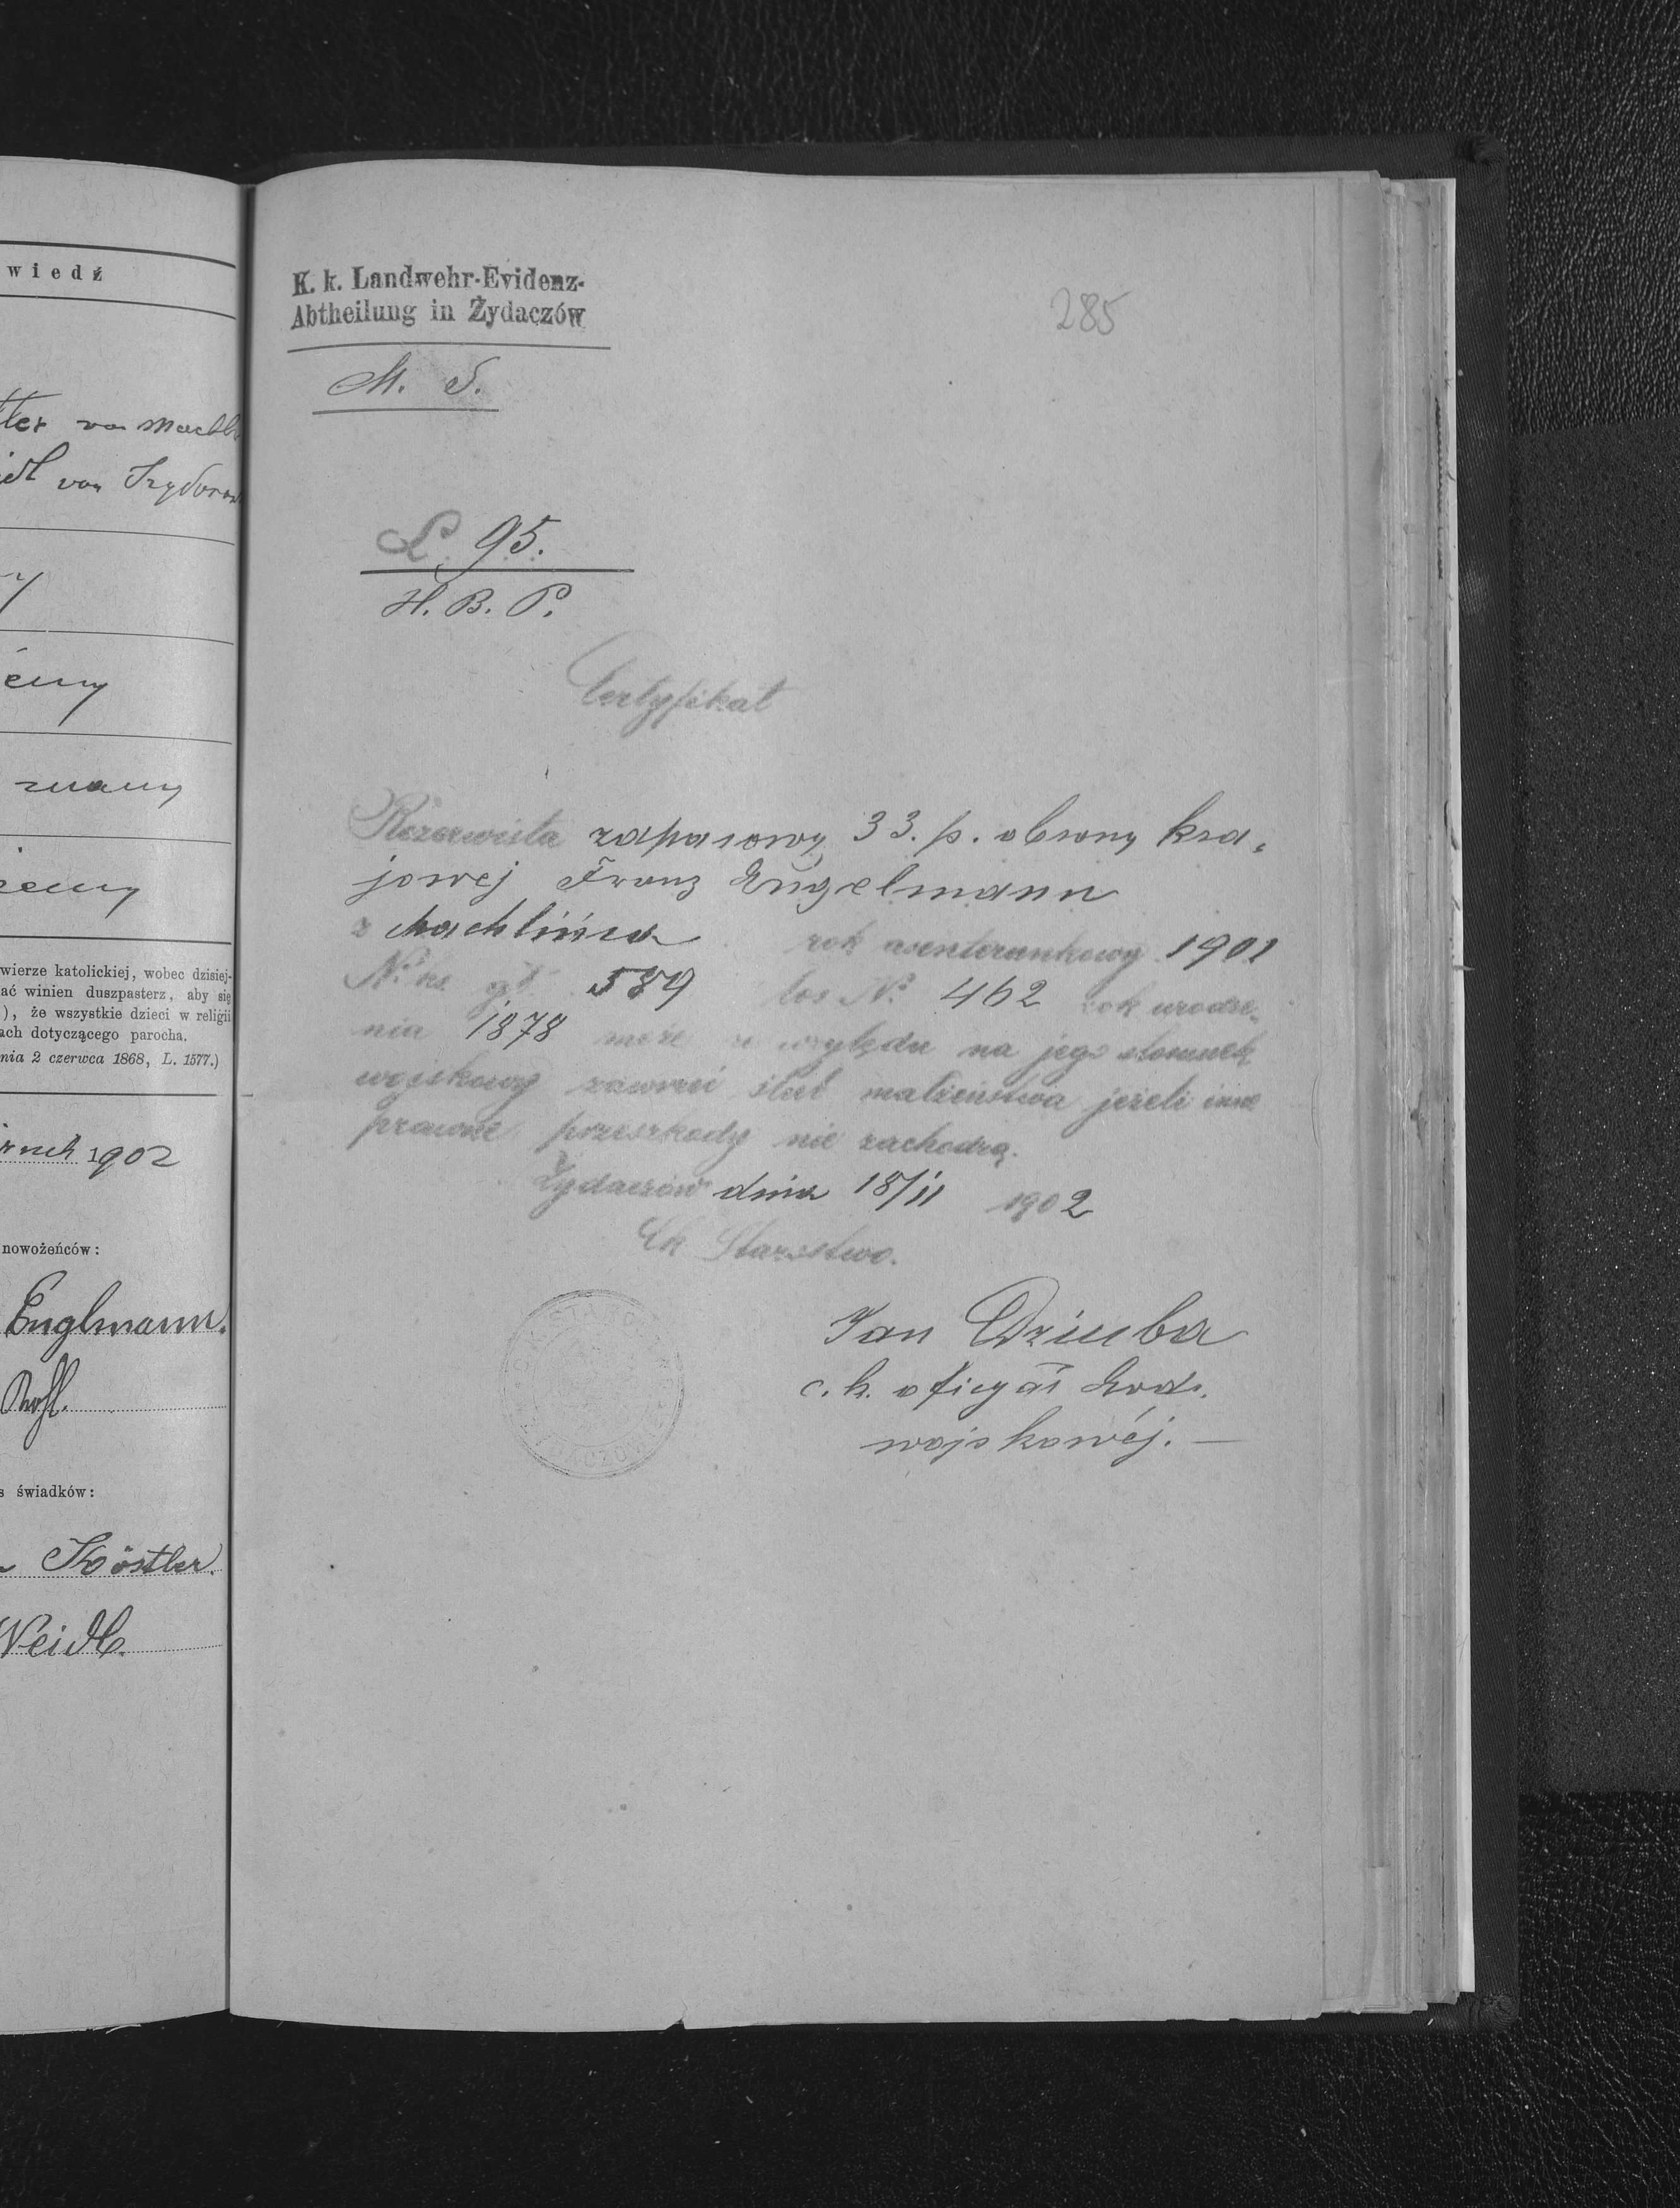 wiedź
tter von Machli
idl von Izydorów
émy
znany
wierze katolickiej, wobec dzisiej-
ać winien duszpasterz, aby się
), że wszystkie dzieci w religii
ach dotyczącego parocha.
nia 2 czerwca 1868, L. 1577.)
1902
nowożeńców:
Englmann.
s świadków:
Köstler.
Weidl.
K. k. Landwehr-Evidenz-
Abtheilung in Żydaczów
285
M. S.
L. 95.
H. B. P.
Certyfikat
Rezerwista zapasowy 33. p. obrony kra-
jowej Franz Engelmann
z Machlińca rok asenterunkowy 1901
No. ks. gł. 589 los No. 462 rok urodze-
nia 1878 może ze względu na jego stosunek
wojskowy zawrzeć ślub małżeństwa jeżeli inne
prawne przeszkody nie zachodzą.
Żydaczów dnia 18/11 1902
Ck Starostwo.
Jan Dziuba
c. k. oficyał
wojskowéj. —